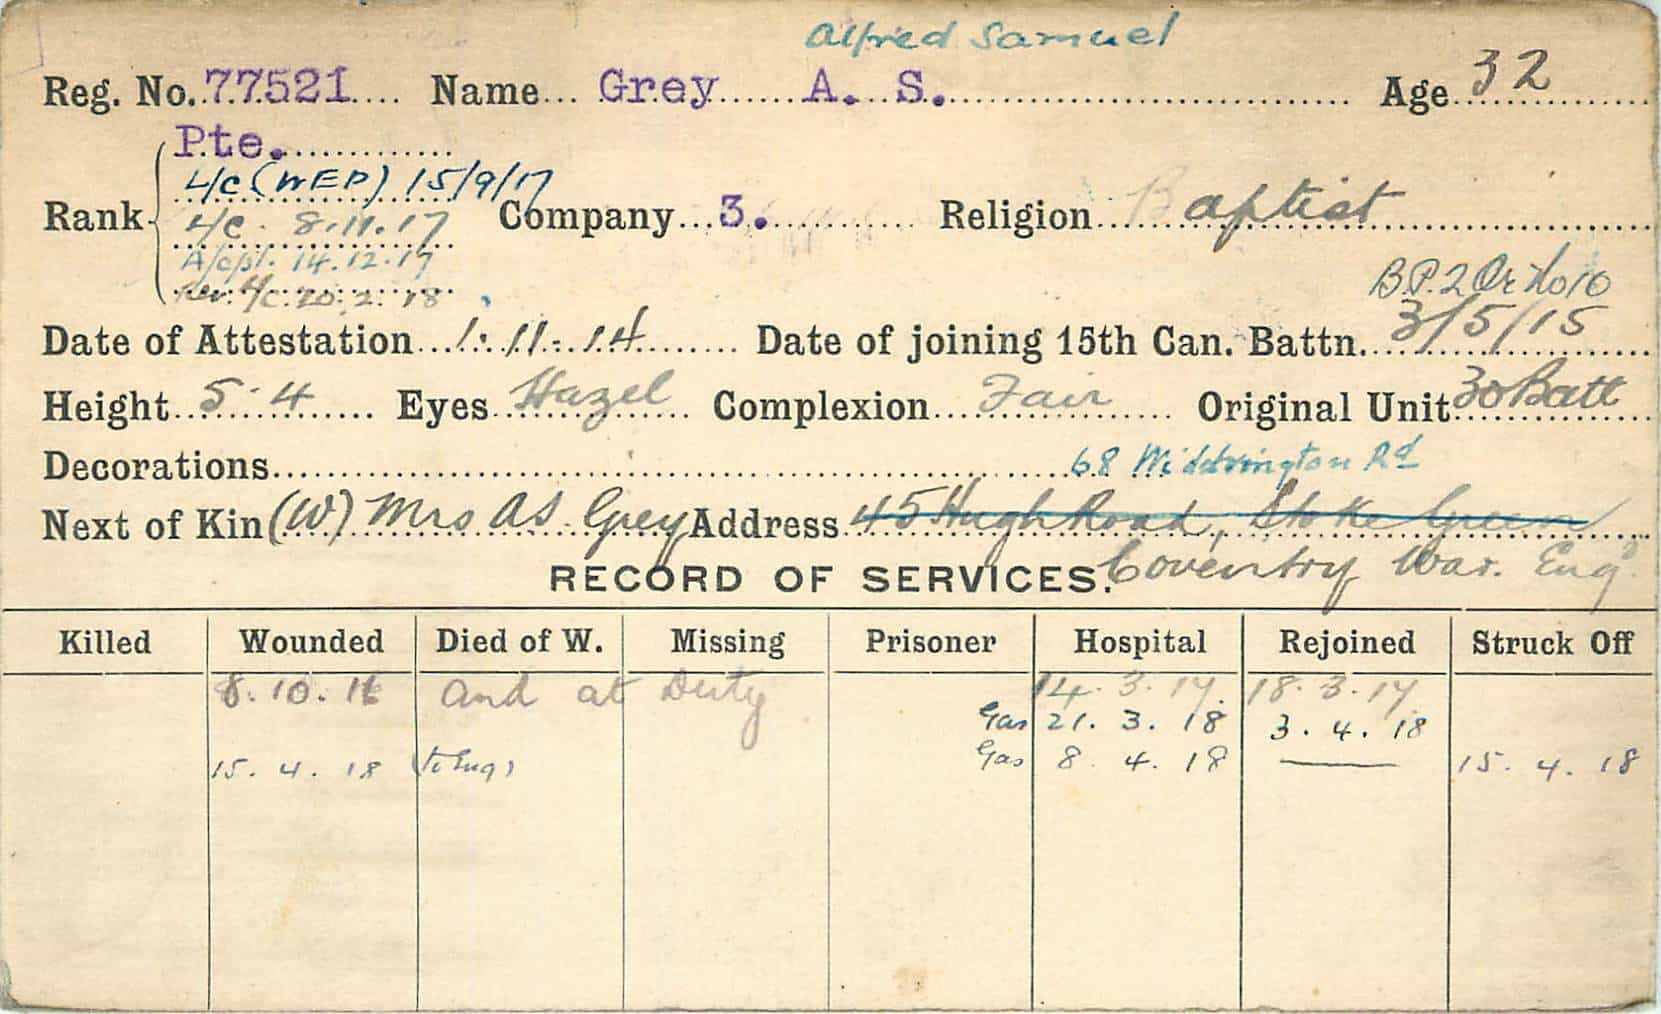 Alfred Samuel
Reg. No. 77521 Name Grey A. S. Age 32
Pte.
L/C (WEP) 15/9/17
Rank L/C. 8.11.17 Company 3. Religion Baptist
A/Cpl. 14.12.17
Rev. L/C. 20.2.18 B.P.2 Or No 10
Date of Attestation 1.11.14 Date of joining 15th Can. Battn. 3/5/15
Height 5.4 Eyes Hazel Complexion Fair Original Unit 30 Batt
Decorations 68 Widdrington Rd
Next of Kin (W) Mrs A S. Grey Address 45 Hugh Road, Stoke Green
RECORD OF SERVICES. Coventry War. Eng.
Killed Wounded Died of W. Missing Prisoner Hospital Rejoined Struck Off
8.10.16 and at Duty 14.3.17. 18.3.17
Gas 21.3.18 3.4.18
15.4.18 (to Eng) Gas 8.4.18 — 15.4.18